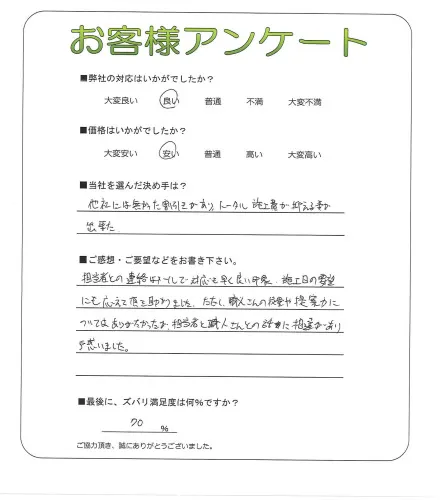 お客様アンケート
■弊社の対応はいかがでしたか?
大変良い 良い 普通 不満 大変不満
■価格はいかがでしたか?
大変安い 安い 普通 高い 大変高い
■当社を選んだ決め手は?
他社には無かった割引きがあり、トータル施工費が抑える事が
出来た。
■ご感想・ご要望などをお書き下さい。
担当者との連絡は 対応も早く良い印象。施工日の希望
にも応えて頂き助かりました。ただし、職人さんの技術や提案力に
ついてはありがたかったが、担当者と職人さんとの話に相違があり
戸惑いました。
■最後に、ズバリ満足度は何%ですか?
70 %
ご協力頂き、誠にありがとうございました。